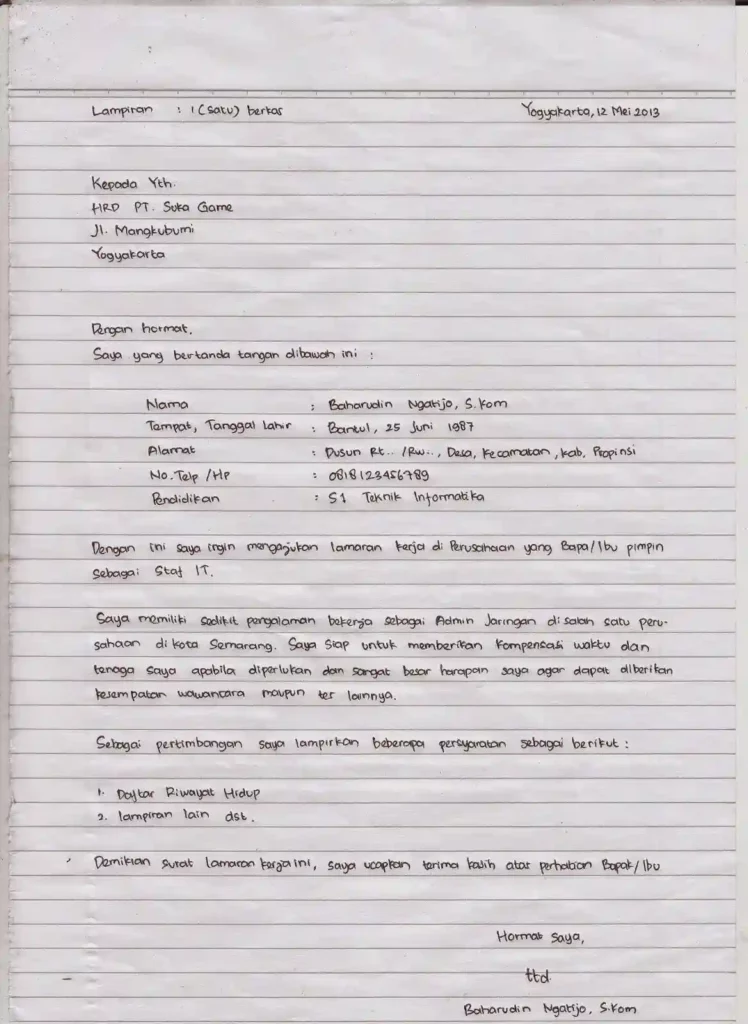 Lampiran : 1 (satu) berkas Yogyakarta, 12 Mei 2013
Kepada Yth.
HRD PT. Suka Game
Jl. Mangkubumi
Yogyakarta
Dengan hormat.
Saya yang bertanda tangan dibawah ini :
Nama : Baharudin Ngatijo, S.Kom
Tempat, Tanggal lahir : Bantul, 25 Juni 1987
Alamat : Dusun Rt.. /Rw.., Desa, Kecamatan, Kab. Propinsi
No. Telp /Hp : 0818123456789
Pendidikan : S1 Teknik Informatika
Dengan ini saya ingin mengajukan lamaran kerja di Perusahaan yang Bapa/Ibu pimpin
sebagai Staf IT.
Saya memiliki sedikit pengalaman bekerja sebagai Admin Jaringan di salah satu peru-
sahaan di kota Semarang. Saya siap untuk memberikan kompensasi waktu dan
tenaga saya apabila diperlukan dan sangat besar harapan saya agar dapat diberikan
kesempatan wawancara maupun tes lainnya.
Sebagai pertimbangan saya lampirkan beberapa persyaratan sebagai berikut :
1. Daftar Riwayat Hidup
2. lampiran lain dst.
Demikian surat lamaran kerja ini, saya ucapkan terima kasih atas perhatian Bapak/Ibu
Hormat saya,
ttd.
Baharudin Ngatijo, S.Kom